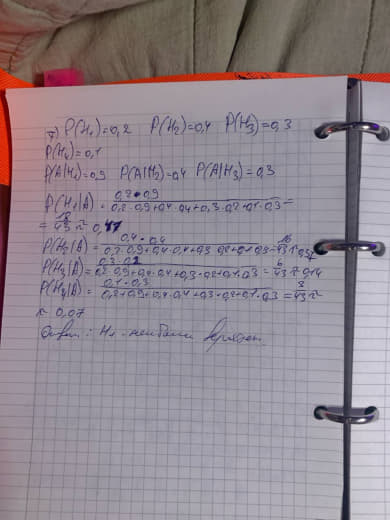 7) P(H₁)=0,2 P(H₂)=0,4 P(H₃)=0,3
P(H₄)=0,1
P(A|H₁)=0,9 P(A|H₂)=0,4 P(A|H₃)=0,3
P(H₁|A)= 0,2·0,9 / 0,2·0,9+0,4·0,4+0,3·0,2+0,1·0,3 =
= 18/43 ≈ 0,47
P(H₂|A)= 0,4·0,4 / 0,2·0,9+0,4·0,4+0,3·0,2+0,1·0,3 = 16/43 ≈ 0,37
P(H₃|A)= 0,3·0,2 / 0,2·0,9+0,4·0,4+0,3·0,2+0,1·0,3 = 6/43 ≈ 0,14
P(H₄|A)= 0,1·0,3 / 0,2·0,9+0,4·0,4+0,3·0,2+0,1·0,3 = 3/43 ≈
≈ 0,07
Ответ: H₁ - наиболее вероятн.